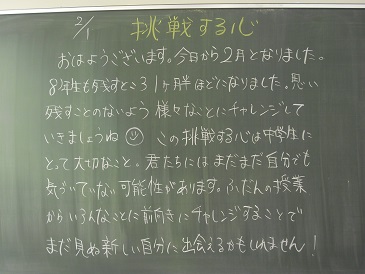 2/1
挑戦する心
おはようございます。今日から2月となりました。
8年生も残すところ1ヶ月ほどになりました。思い
残すことのないよう様々なことにチャレンジして
いきましょうね
この挑戦する心は中学生に
とって大切なこと。君たちにはまだまだ自分でも
気づいていない可能性があります。ふだんの授業
からいろんなことに前向きにチャレンジすることで
まだ見ぬ新しい自分に出会えるかもしれません!